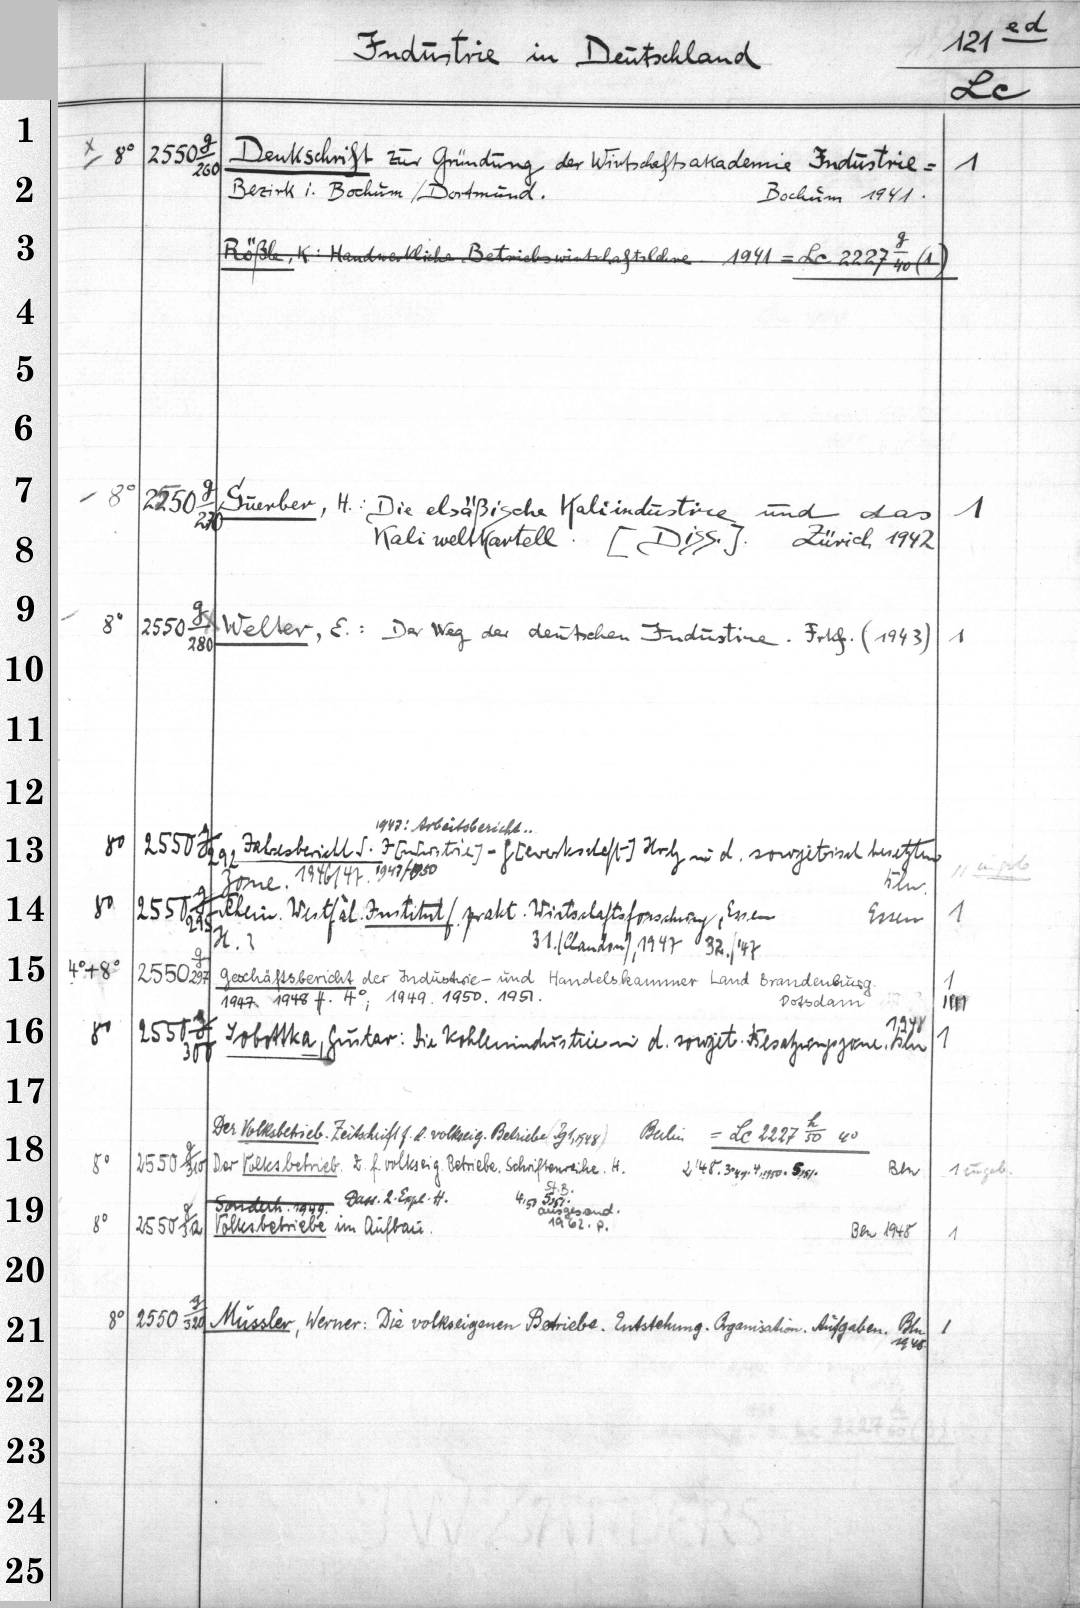 Industrie in Deutschland
121 ed
Lc
1
x 8° 2550 g/260 Denkschrift zur Gründung der Wirtschaftsakademie Industrie= 1
2
Bezirk i. Bochum/Dortmund. Bochum 1941.
3
Rößle, K: Handwerkliche Betriebswirtschaftslehre. 1941 = Lc 2227 g/40 (1)
4
5
6
7
8° 2550 g/270 Guerber, H.: Die elsäßische Kaliindustrie und das 1
8
Kaliweltkartell. [Diss.]. Zürich 1942
9
8° 2550 g/280 Welter, E.: Der Weg der deutschen Industrie. Frkf. (1943) 1
10
11
12
1947: Arbeitsbericht..
13
8° 2550 g/292 Jahresbericht d. I[ndustrie]-G[ewerkschaft] Holz in d. sowjetisch besetzten
Zone. 1946/47. 1947/1950 Bln.
14
8° 2550 g/295 Rhein. Westfäl. Institut f. prakt. Wirtschaftsforschung, Essen Essen 1
H. ? 31. 1947 32./'47
15
4°+8° 2550 g/297 Geschäftsbericht der Industrie- und Handelskammer Land Brandenburg. 1
1947. 1948 ff. 4°; 1949. 1950. 1951. Potsdam
16
8° 2550 g/300 Sobottka, Gustav: Die Kohlenindustrie in d. sowjet. Besatzungszone. Bln 1948 1
17
Der Volksbetrieb. Zeitschrift f. d. volkseig. Betriebe (Jg 1, 1948) Berlin = Lc 2227 h/50 4°
18
8° 2550 g/310 Der Volksbetrieb. Z. f. volkseig. Betriebe. Schriftenreihe. H. 2'48. 3 '49. 4, 1950. 5, '51. Bln 1 ungeb.
19
Sonderh. 1949. Dass. 2. Expl. H. 4,50 5,51. St.B. ausgesond. 1962. p.
8° 2550 Volksbetriebe im Aufbau. Bln 1948 1
20
21
8° 2550 g/320 Mussler, Werner: Die volkseigenen Betriebe. Entstehung. Organisation. Aufgaben. Bln 1948. 1
22
23
24
25